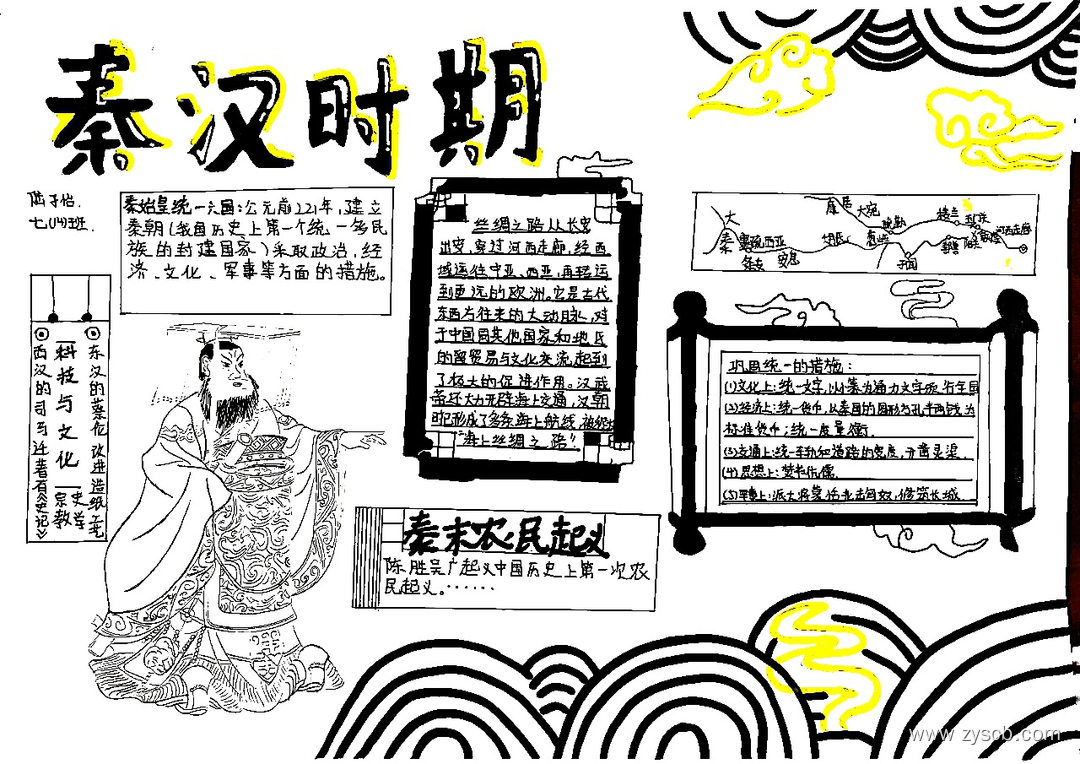 秦汉时期
陆子怡.
七(4)班.
秦始皇统一六国:公元前221年,建立
秦朝(我国历史上第一个统一多民
族的封建国家)采取政治,经
济、文化、军事等方面的措施。
东汉的蔡伦改进造纸工艺
科技与文化
史学
宗教
西汉的司马迁著有《史记》
丝绸之路从长安
出发,穿过河西走廊,经西
域运往中亚、西亚,再转运
到更远的欧洲。它是古代
东西方往来的大动脉,对
于中国同其他国家和地区
的贸易与文化交流起到
了极大的促进作用。汉武
帝还大力开辟海上交通,汉朝
时形成了多条海上航线,被称为
"海上丝绸之路"
大
秦
康居
大宛
疏勒
楼兰
敦煌
河西走廊
条支
安息
于阗
巩固统一的措施:
(1)文化上:统一文字,以小篆为通力文字颁行全国
(2)经济上:统一货币,以秦国的圆形方孔半两钱为
标准货币;统一度量衡.
(3)交通上:统一车轨和道路的宽度,开凿灵渠
(4)思想上:焚书坑儒.
(5)军事上:派大将蒙恬北击匈奴,修筑长城
秦末农民起义
陈胜吴广起义中国历史上第一次农
民起义。……
www.zyscb.com